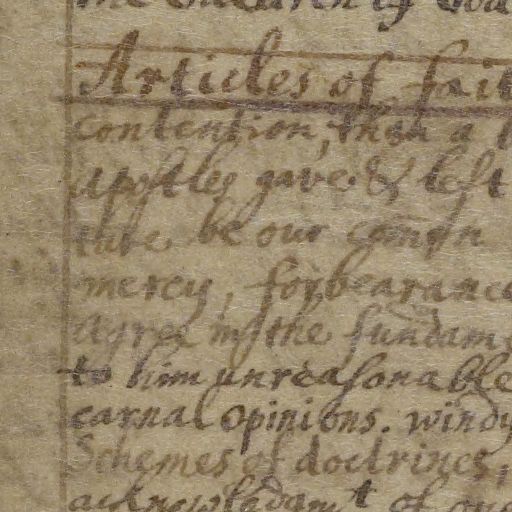 the children of God
Articles of fait
contention, than a
Apostles gave & left
be our comon
mercy, forbearance
Agree in the fundam
to him unreasonable
carnal Opinions. windy
Schemes of doctrines,
acknowledgmt of